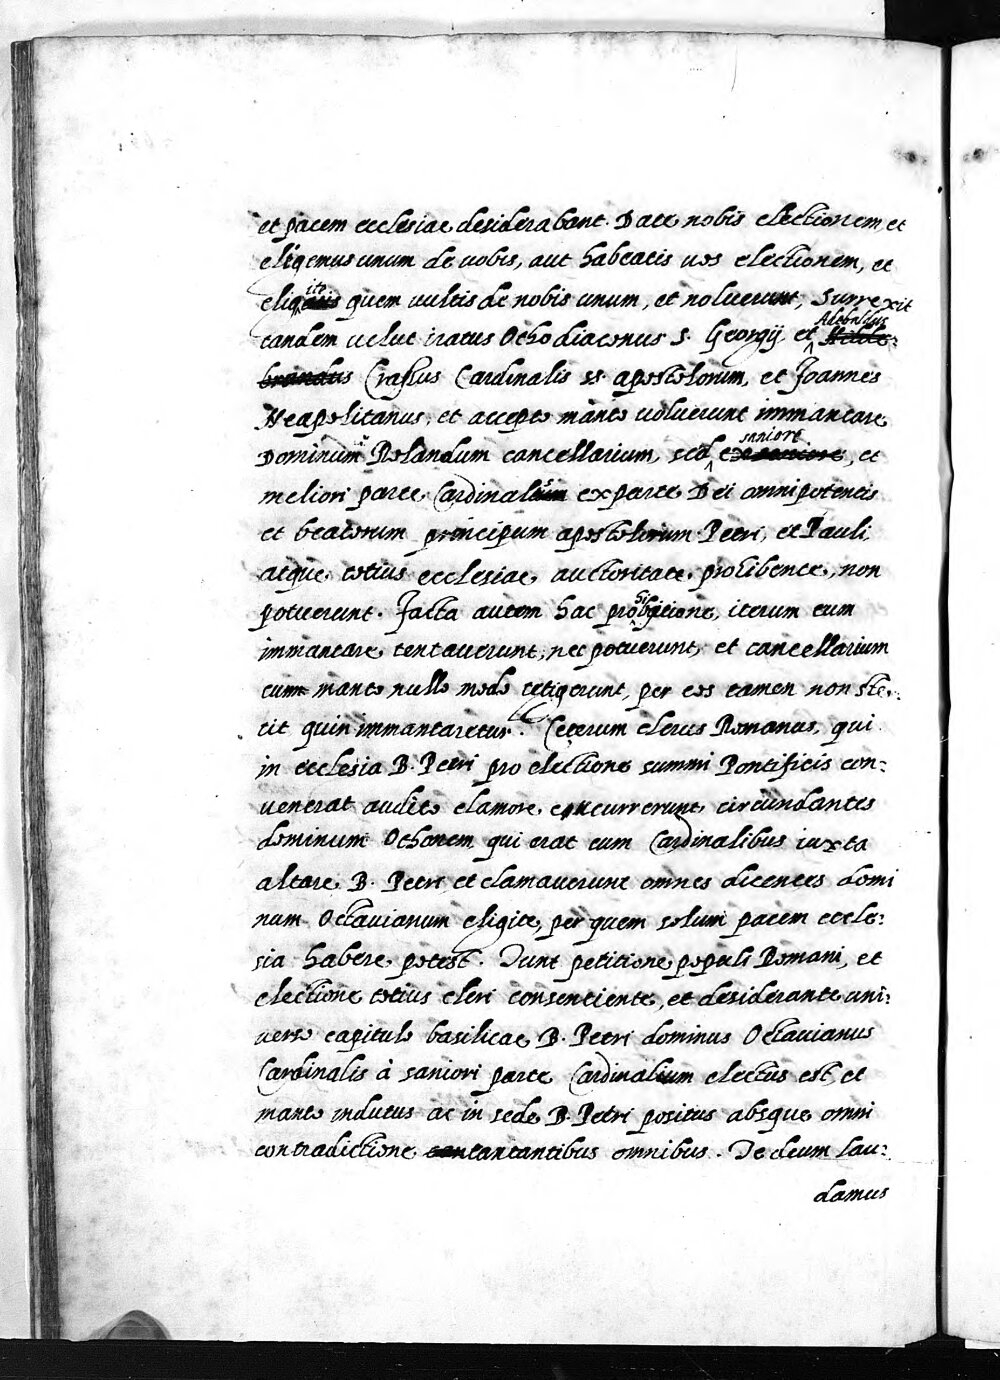 et pacem ecclesiae desiderabant. Date nobis electionem, et
eligemus unum de uobis, aut habeatis uos electionem, et
eligite quem uultis de nobis unum, et noluerunt, Surrexit
tandem uelut iratus Otho diaconus S. Georgij et Aldebaldus
Crassus Cardinalis ss apostolorum, et Joannes
Neapolitanus, et accepto manto uoluerunt immantare
Dominum Rolandum cancellarium, sed saniore, et
meliori parte Cardinalium ex parte Dei omnipotentis
et beatorum principum apostolorum Petri, et Pauli,
atque totius ecclesiae auctoritate prohibente, non
potuerunt. Facta autem hac prohibitione, iterum eum
immantare tentauerunt, nec potuerunt, et cancellarium
cum manto nullo modo tetigerunt, per eos tamen non ste-
tit quin immantaretur. Ceterum clerus Romanus, qui
in ecclesia B. Petri pro electione summi Pontificis con-
uenerat audito clamore concurrerunt, circundantes
dominum Othonem qui erat cum Cardinalibus iuxta
altare B. Petri et clamauerunt omnes dicentes domi
num Octauianum eligite, per quem solum pacem eccle-
sia habere potest. Tunc petitione populi Romani, et
electione totius cleri consentiente, et desiderante uni-
uerso capitulo basilicae B. Petri dominus Octauianus
Cardinalis à saniori parte Cardinalium electus est, et
manto indutus ac in sede B. Petri positus absque omni
contradictione cantantibus omnibus. Te deum lau-
damus